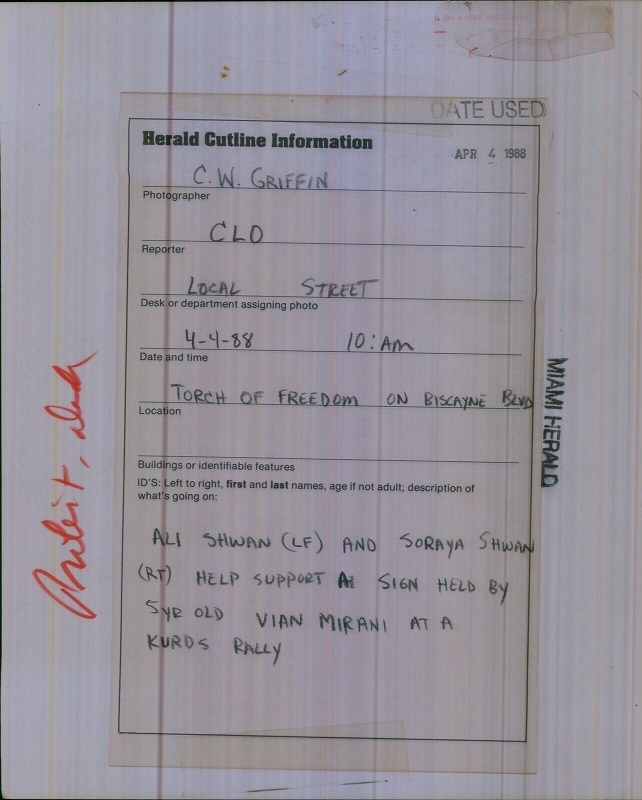 DATE USED
Herald Cutline Information
APR 4 1988
C.W. GRIFFIN
Photographer
CLO
Reporter
LOCAL STREET
Desk or department assigning photo
4-4-88 10:AM
Date and time
TORCH OF FREEDOM ON BISCAYNE BLVD
Location
Buildings or identifiable features
ID'S: Left to right, first and last names, age if not adult; description of
what's going on:
ALI SHWAN (LF) AND SORAYA SHWAN
(RT) HELP SUPPORT A SIGN HELD BY
5YR OLD VIAN MIRANI AT A
KURDS RALLY
MIAMI HERALD